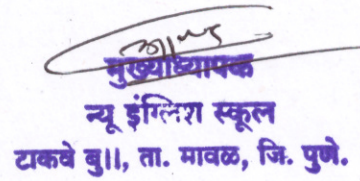 मुख्याध्यापक
न्यू इंग्लिश स्कूल
टाकवे बु||, ता. मावळ, जि. पुणे.